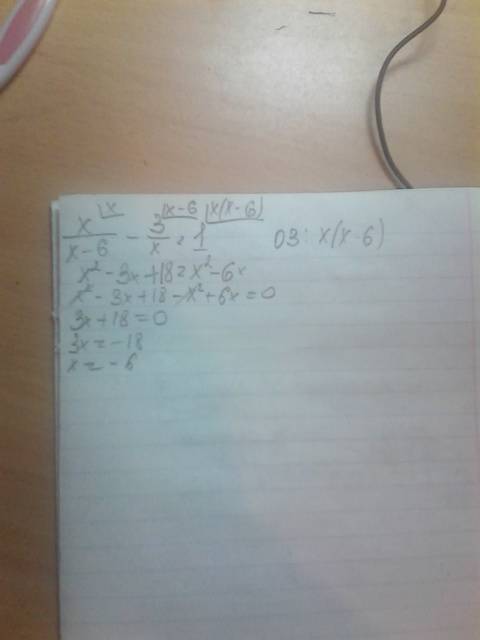 x/(x-6) |x - 3/x |x-6 = 1 |x(x-6) ОЗ: x(x-6)
x² - 3x + 18 = x² - 6x
x² - 3x + 18 - x² + 6x = 0
3x + 18 = 0
3x = - 18
x = - 6